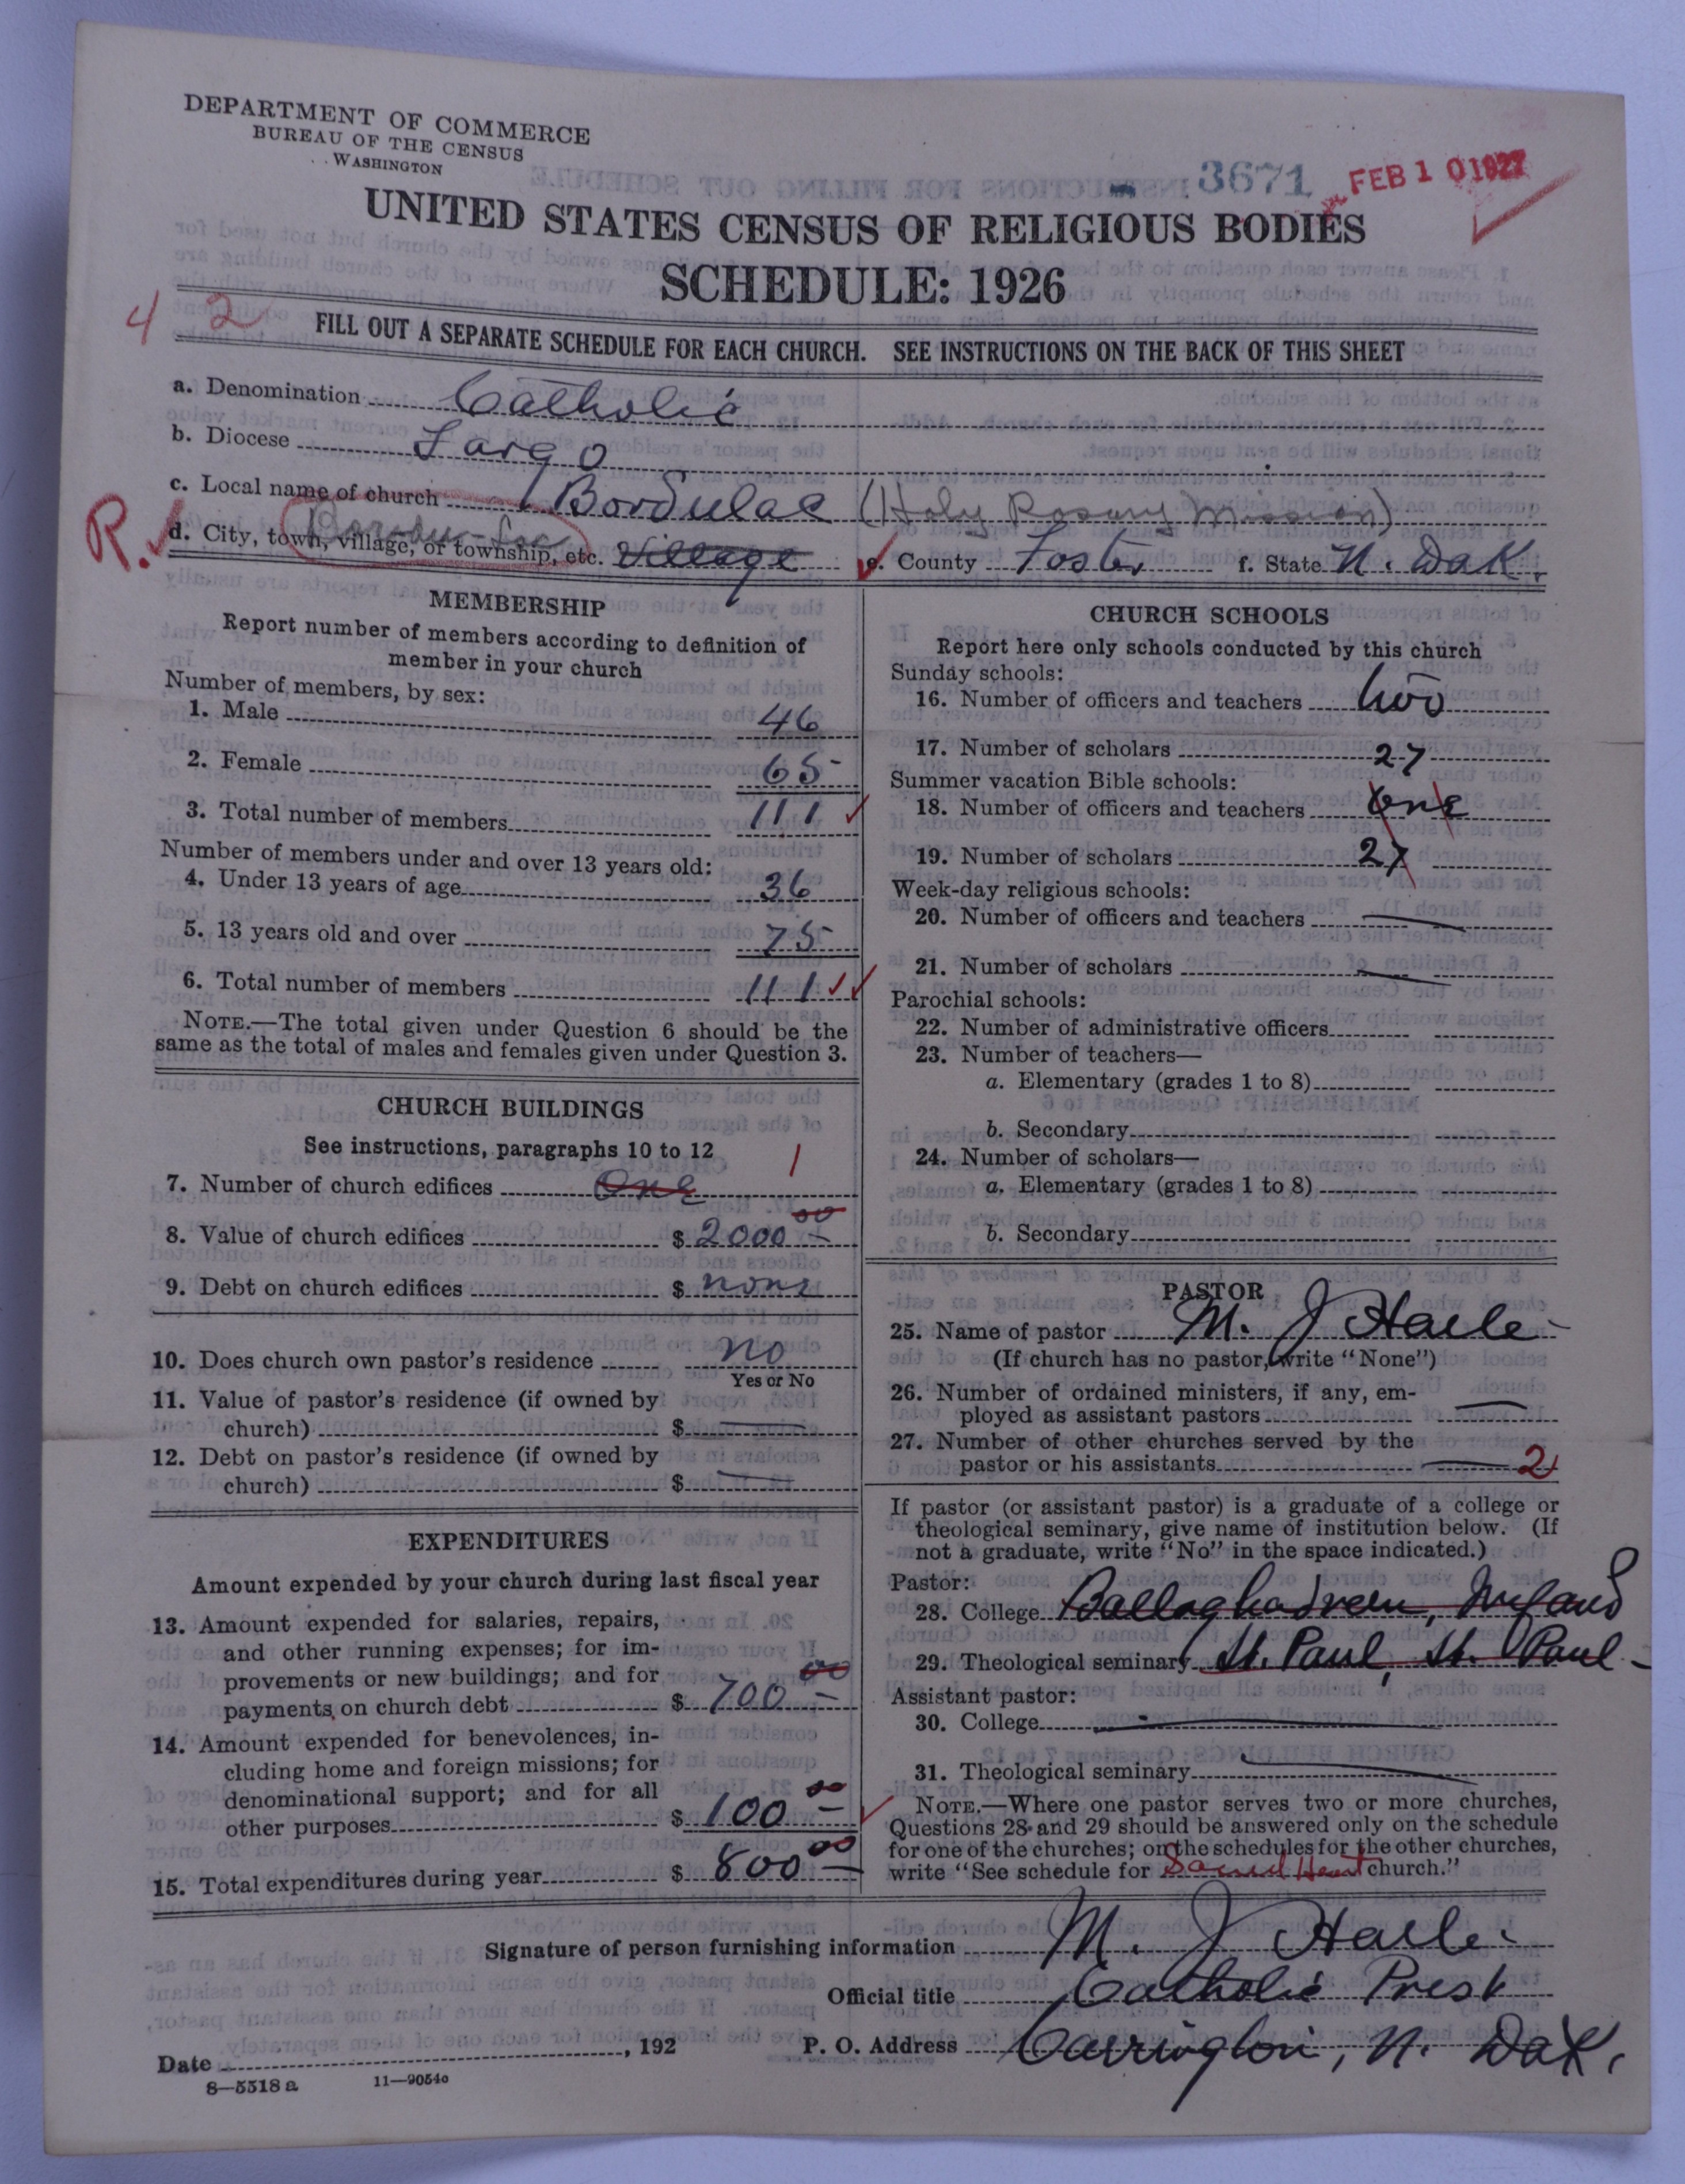 DEPARTMENT OF COMMERCE
BUREAU OF THE CENSUS
WASHINGTON
3671
FEB 10 1927
UNITED STATES CENSUS OF RELIGIOUS BODIES
SCHEDULE: 1926
4 2
FILL OUT A SEPARATE SCHEDULE FOR EACH CHURCH. SEE INSTRUCTIONS ON THE BACK OF THIS SHEET
a. Denomination Catholic
b. Diocese Fargo
c. Local name of church Bordulac (Holy Rosary Mission)
R. d. City, town, village, or township, etc. Village e. County Foster f. State N. Dak.
MEMBERSHIP
Report number of members according to definition of
member in your church
Number of members, by sex:
1. Male 46
2. Female 65
3. Total number of members 111
Number of members under and over 13 years old:
4. Under 13 years of age 36
5. 13 years old and over 75
6. Total number of members 111
NOTE.—The total given under Question 6 should be the
same as the total of males and females given under Question 3.
CHURCH BUILDINGS
See instructions, paragraphs 10 to 12
7. Number of church edifices One 1
8. Value of church edifices $ 2000 00
9. Debt on church edifices $ none
10. Does church own pastor's residence No
Yes or No
11. Value of pastor's residence (if owned by
church) $
12. Debt on pastor's residence (if owned by
church) $
EXPENDITURES
Amount expended by your church during last fiscal year
13. Amount expended for salaries, repairs,
and other running expenses; for im-
provements or new buildings; and for
payments on church debt $ 700 00
14. Amount expended for benevolences, in-
cluding home and foreign missions; for
denominational support; and for all
other purposes $ 100 00
15. Total expenditures during year $ 800 00
CHURCH SCHOOLS
Report here only schools conducted by this church
Sunday schools:
16. Number of officers and teachers two
17. Number of scholars 27
Summer vacation Bible schools:
18. Number of officers and teachers One
19. Number of scholars 27
Week-day religious schools:
20. Number of officers and teachers —
21. Number of scholars —
Parochial schools:
22. Number of administrative officers
23. Number of teachers—
a. Elementary (grades 1 to 8)
b. Secondary
24. Number of scholars—
a. Elementary (grades 1 to 8)
b. Secondary
PASTOR
25. Name of pastor M. J. Haile
(If church has no pastor, write "None")
26. Number of ordained ministers, if any, em-
ployed as assistant pastors —
27. Number of other churches served by the
pastor or his assistants — 2
If pastor (or assistant pastor) is a graduate of a college or
theological seminary, give name of institution below. (If
not a graduate, write "No" in the space indicated.)
Pastor:
28. College Ballaghadreen,
29. Theological seminary St. Paul, St. Paul
Assistant pastor:
30. College
31. Theological seminary
NOTE.—Where one pastor serves two or more churches,
Questions 28 and 29 should be answered only on the schedule
for one of the churches; on the schedules for the other churches,
write "See schedule for Sacred Heart church."
Signature of person furnishing information M. J. Haile
Official title Catholic Prest
Date , 192 P. O. Address Carrington, N. Dak.
8—5518 a 11—9054o